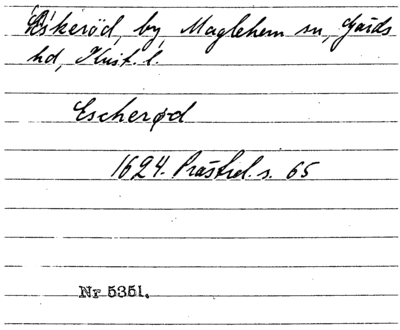 Eskeröd, by, Maglehem sn, Gärds
hd, Krist. l.
Escherød
1624. Prästrel. s. 65
Nr 5351.